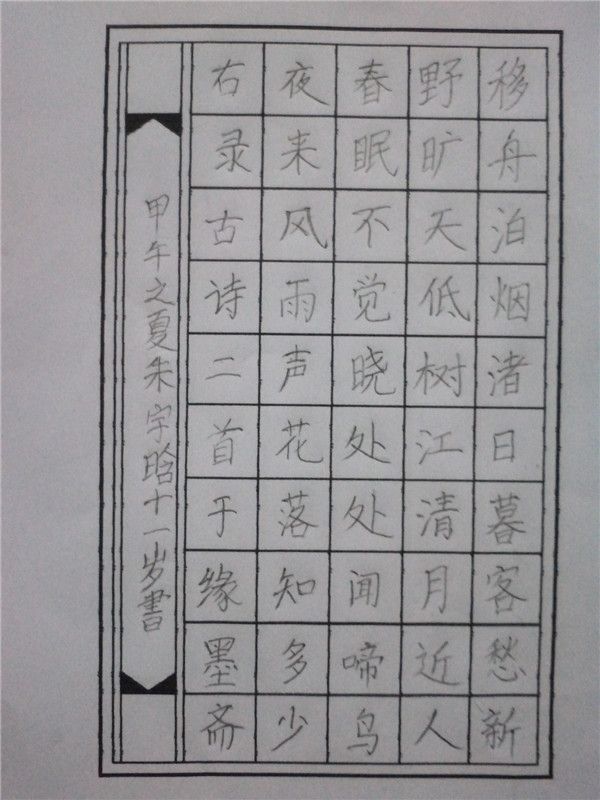 移舟泊烟渚日暮客愁新
野旷天低树江清月近人
春眠不觉晓处处闻啼鸟
夜来风雨声花落知多少
右录古诗二首于缘墨斋
甲午之夏朱宇晗十一岁書